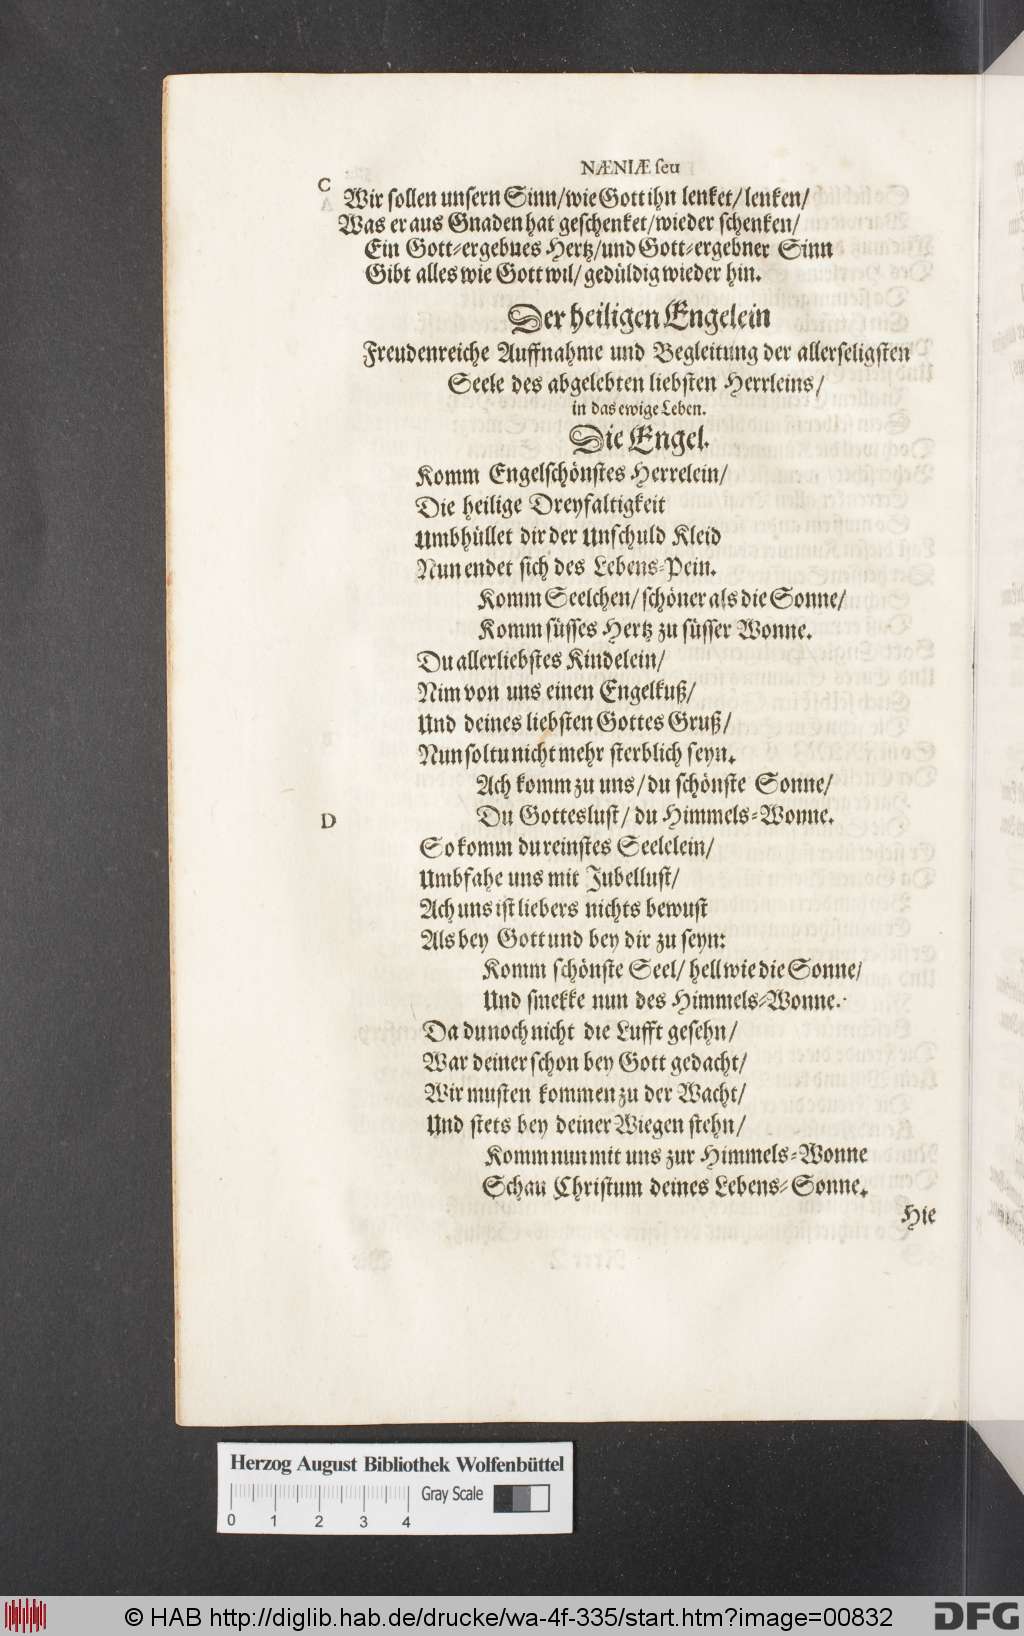 NÆNIÆ ſeu
C
Wir sollen unsern Sinn/wie Gott ihn lenket/lenken/
Was er aus Gnaden hat geschenket/wieder schenken/
Ein Gott-ergebnes Hertz/und Gott-ergebner Sinn
Gibt alles wie Gott wil/gedüldig wieder hin.
Der heiligen Engelein
Freudenreiche Auffnahme und Begleitung der allerseligsten
Seele des abgelebten liebsten Herrleins/
in das ewige Leben.
Die Engel.
Komm Engelschönstes Herrelein/
Die heilige Dreyfaltigkeit
Umbhüllet dir der Unschuld Kleid
Nun endet sich des Lebens-Pein.
Komm Seelchen/schöner als die Sonne/
Komm süsses Hertz zu süsser Wonne.
Du allerliebstes Kindelein/
Nim von uns einen Engelkuß/
Und deines liebsten Gottes Gruß/
Nun soltu nicht mehr sterblich seyn.
Ach komm zu uns/du schönste Sonne/
Du Gotteslust/du Himmels-Wonne.
D
So komm du reinstes Seelelein/
Umbfahe uns mit Jubellust/
Ach uns ist liebers nichts bewust
Als bey Gott und bey dir zu seyn:
Komm schönste Seel/hell wie die Sonne/
Und smekke nun des Himmels-Wonne.
Da du noch nicht die Lufft gesehn/
War deiner schon bey Gott gedacht/
Wir musten kommen zu der Wacht/
Und stets bey deiner Wiegen stehn/
Komm nun mit uns zur Himmels-Wonne
Schau Christum deines Lebens-Sonne.
Hie
Herzog August Bibliothek Wolfenbüttel
Gray Scale
0 1 2 3 4
© HAB http://diglib.hab.de/drucke/wa-4f-335/start.htm?image=00832
DFG